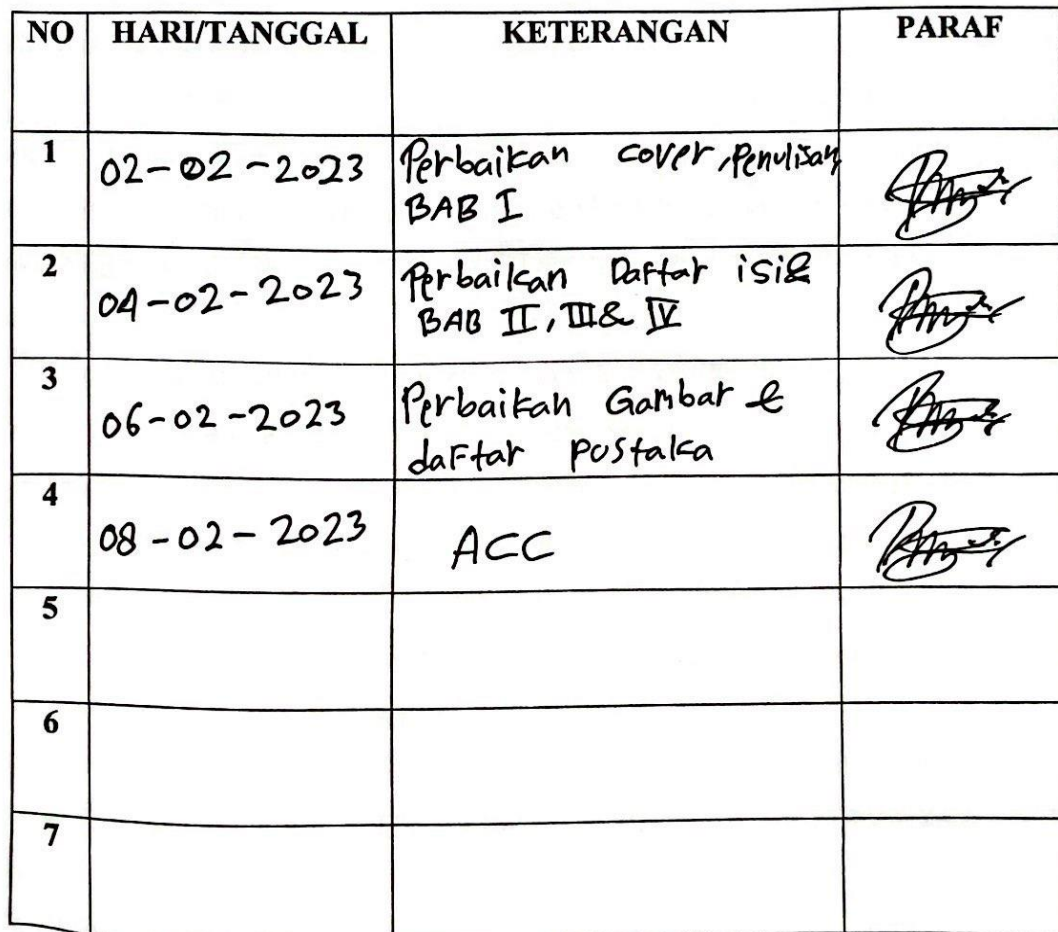 NO HARI/TANGGAL KETERANGAN PARAF
1 02-02-2023 Perbaikan cover, Penulisan
BAB I
2 04-02-2023 Perbaikan Daftar isi &
BAB II, III & IV
3 06-02-2023 Perbaikan Gambar &
daftar pustaka
4 08-02-2023 ACC
5
6
7